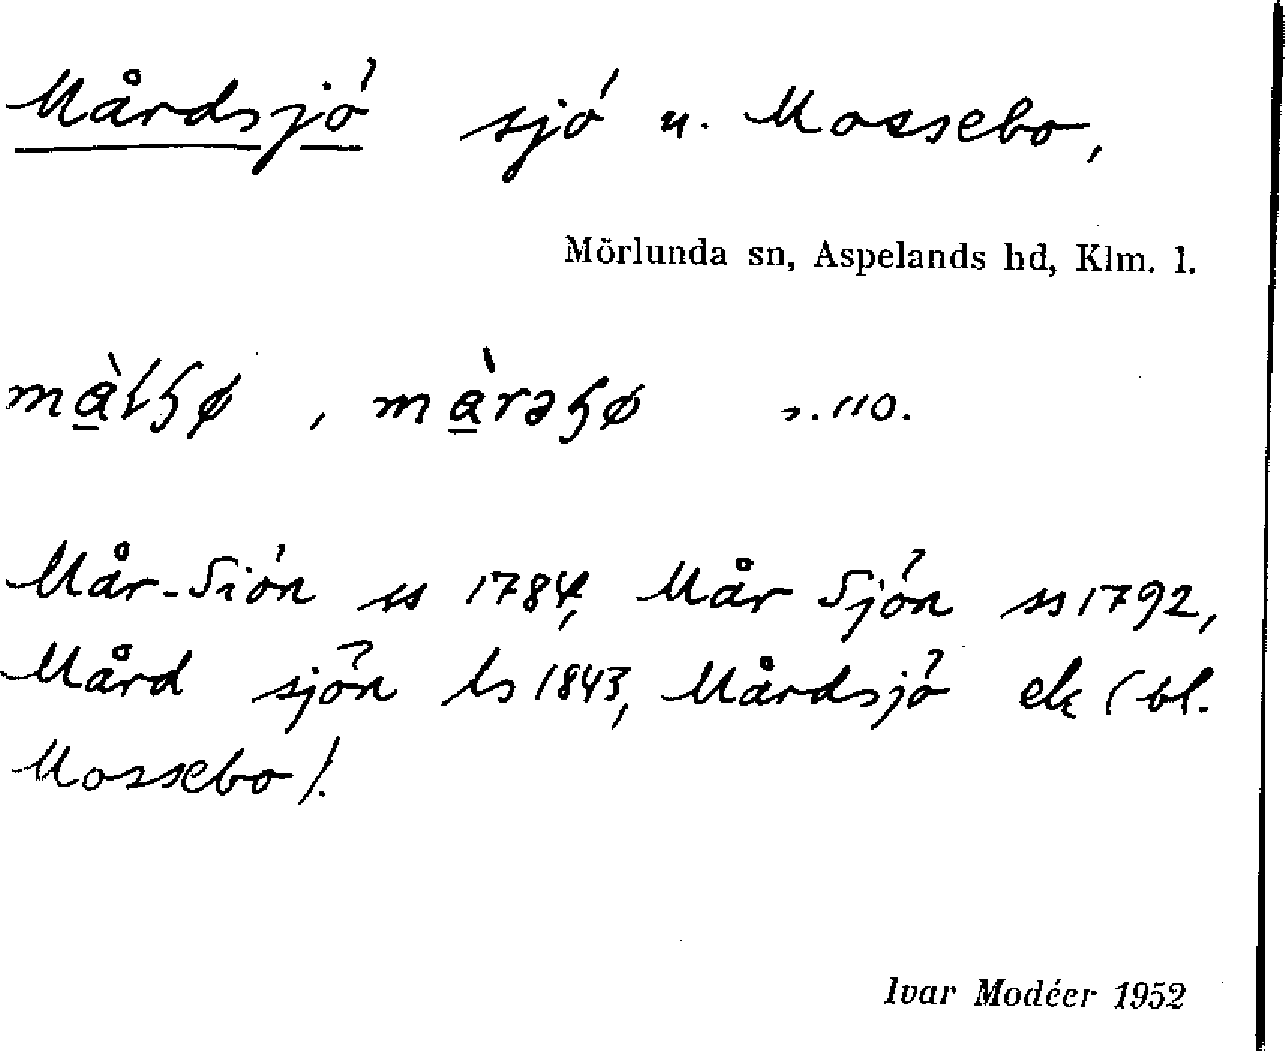 Mårdsjö sjö u. Mossebo,
Mörlunda sn, Aspelands hd, Klm. l.
s. 110.
Mår-Siön ss 1784, Mår Sjön ss 1792,
Mård sjön ls 1843, Mårdsjö ek (bl.
Mossebo).
Ivar Modéer 1952